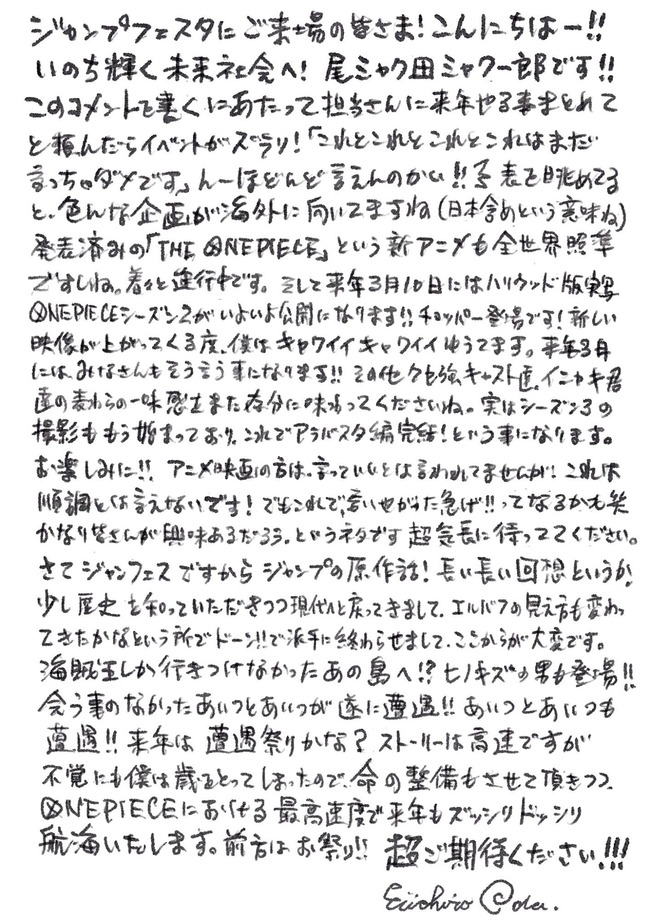 ジャンプフェスタにご来場の皆さま!こんにちはー!!
いのち輝く未来社会へ! 尾ミャク田ミャク一郎です!!
このコメントを書くにあたって担当さんに来年やる事まとめて
と頼んだらイベントがズラリ!「これとこれとこれとこれはまだ
言っちゃダメです」んーほどんど言えんのかい!!予表を眺めてる
と、色んな企画が海外に向いてますね(日本含めという意味ね)
発表済みの「THE ONE PIECE」という新アニメも全世界照準
ですしね。着々と進行中です。そして来年3月10日にはハリウッド版実写
ONE PIECEシーズン2がいよいよ公開になります!!チョッパー登場です!新しい
映像が上がってくる度、僕はキャワイイキャワイイゆうてます。来年3月
には、みなさんもそう言う事になります!!その他クセ強キャスト達、イニャキ君
達の麦わらの一味感もまた存分に味わってくださいね。実はシーズン3の
撮影ももう始まっており、これでアラバスタ編完結!という事になります。
お楽しみに!! アニメ映画の方は、言っていいとは言われてませんが、これは
順調とは言えないです!でもこれで、言いやがった急げ!!ってなるかも笑
かなり皆さんが興味あるだろう、というネタです 超気長に待っててください。
さてジャンフェスですからジャンプの原作話!長い長い回想というか、
少し歴史を知っていただきつつ現代へと戻ってきまして、エルバフの見え方も変わっ
てきたかなという所でドーン!!で派手に終わらせまして、ここからが大変です。
海賊王しか行きつけなかったあの島へ!?ヒノキズの男も登場!!
会う事のなかったあいつとあいつが遂に遭遇!!あいつとあいつも
遭遇!!来年は遭遇祭りかな?ストーリーは高速ですが
不覚にも僕は歳をとってしまったので、命の整備もさせて頂きつつ、
ONE PIECEにおける最高速度で来年もズッシリドッシリ
航海いたします。前方はお祭り!! 超ご期待ください!!!
Eiichiro Oda.